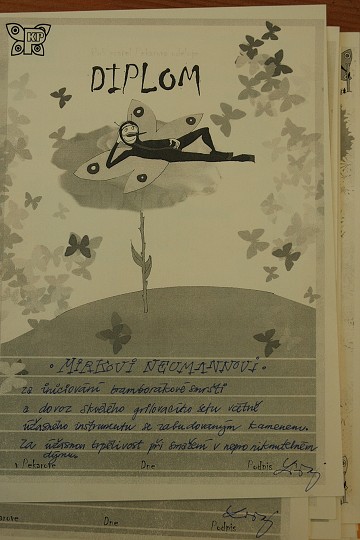 KP
DIPLOM
MIRKOVI NEUMANNOVI
za iniciování bramborákové smršti
a dovoz skvělého grilovacího setu včetně
úžasného instrumentu se zabudovaným kamenem.
Za úžasnou trpělivost při smažení v neproniknutelném
dýmu.
Pekařově Dne Podpis
Dne Podpis